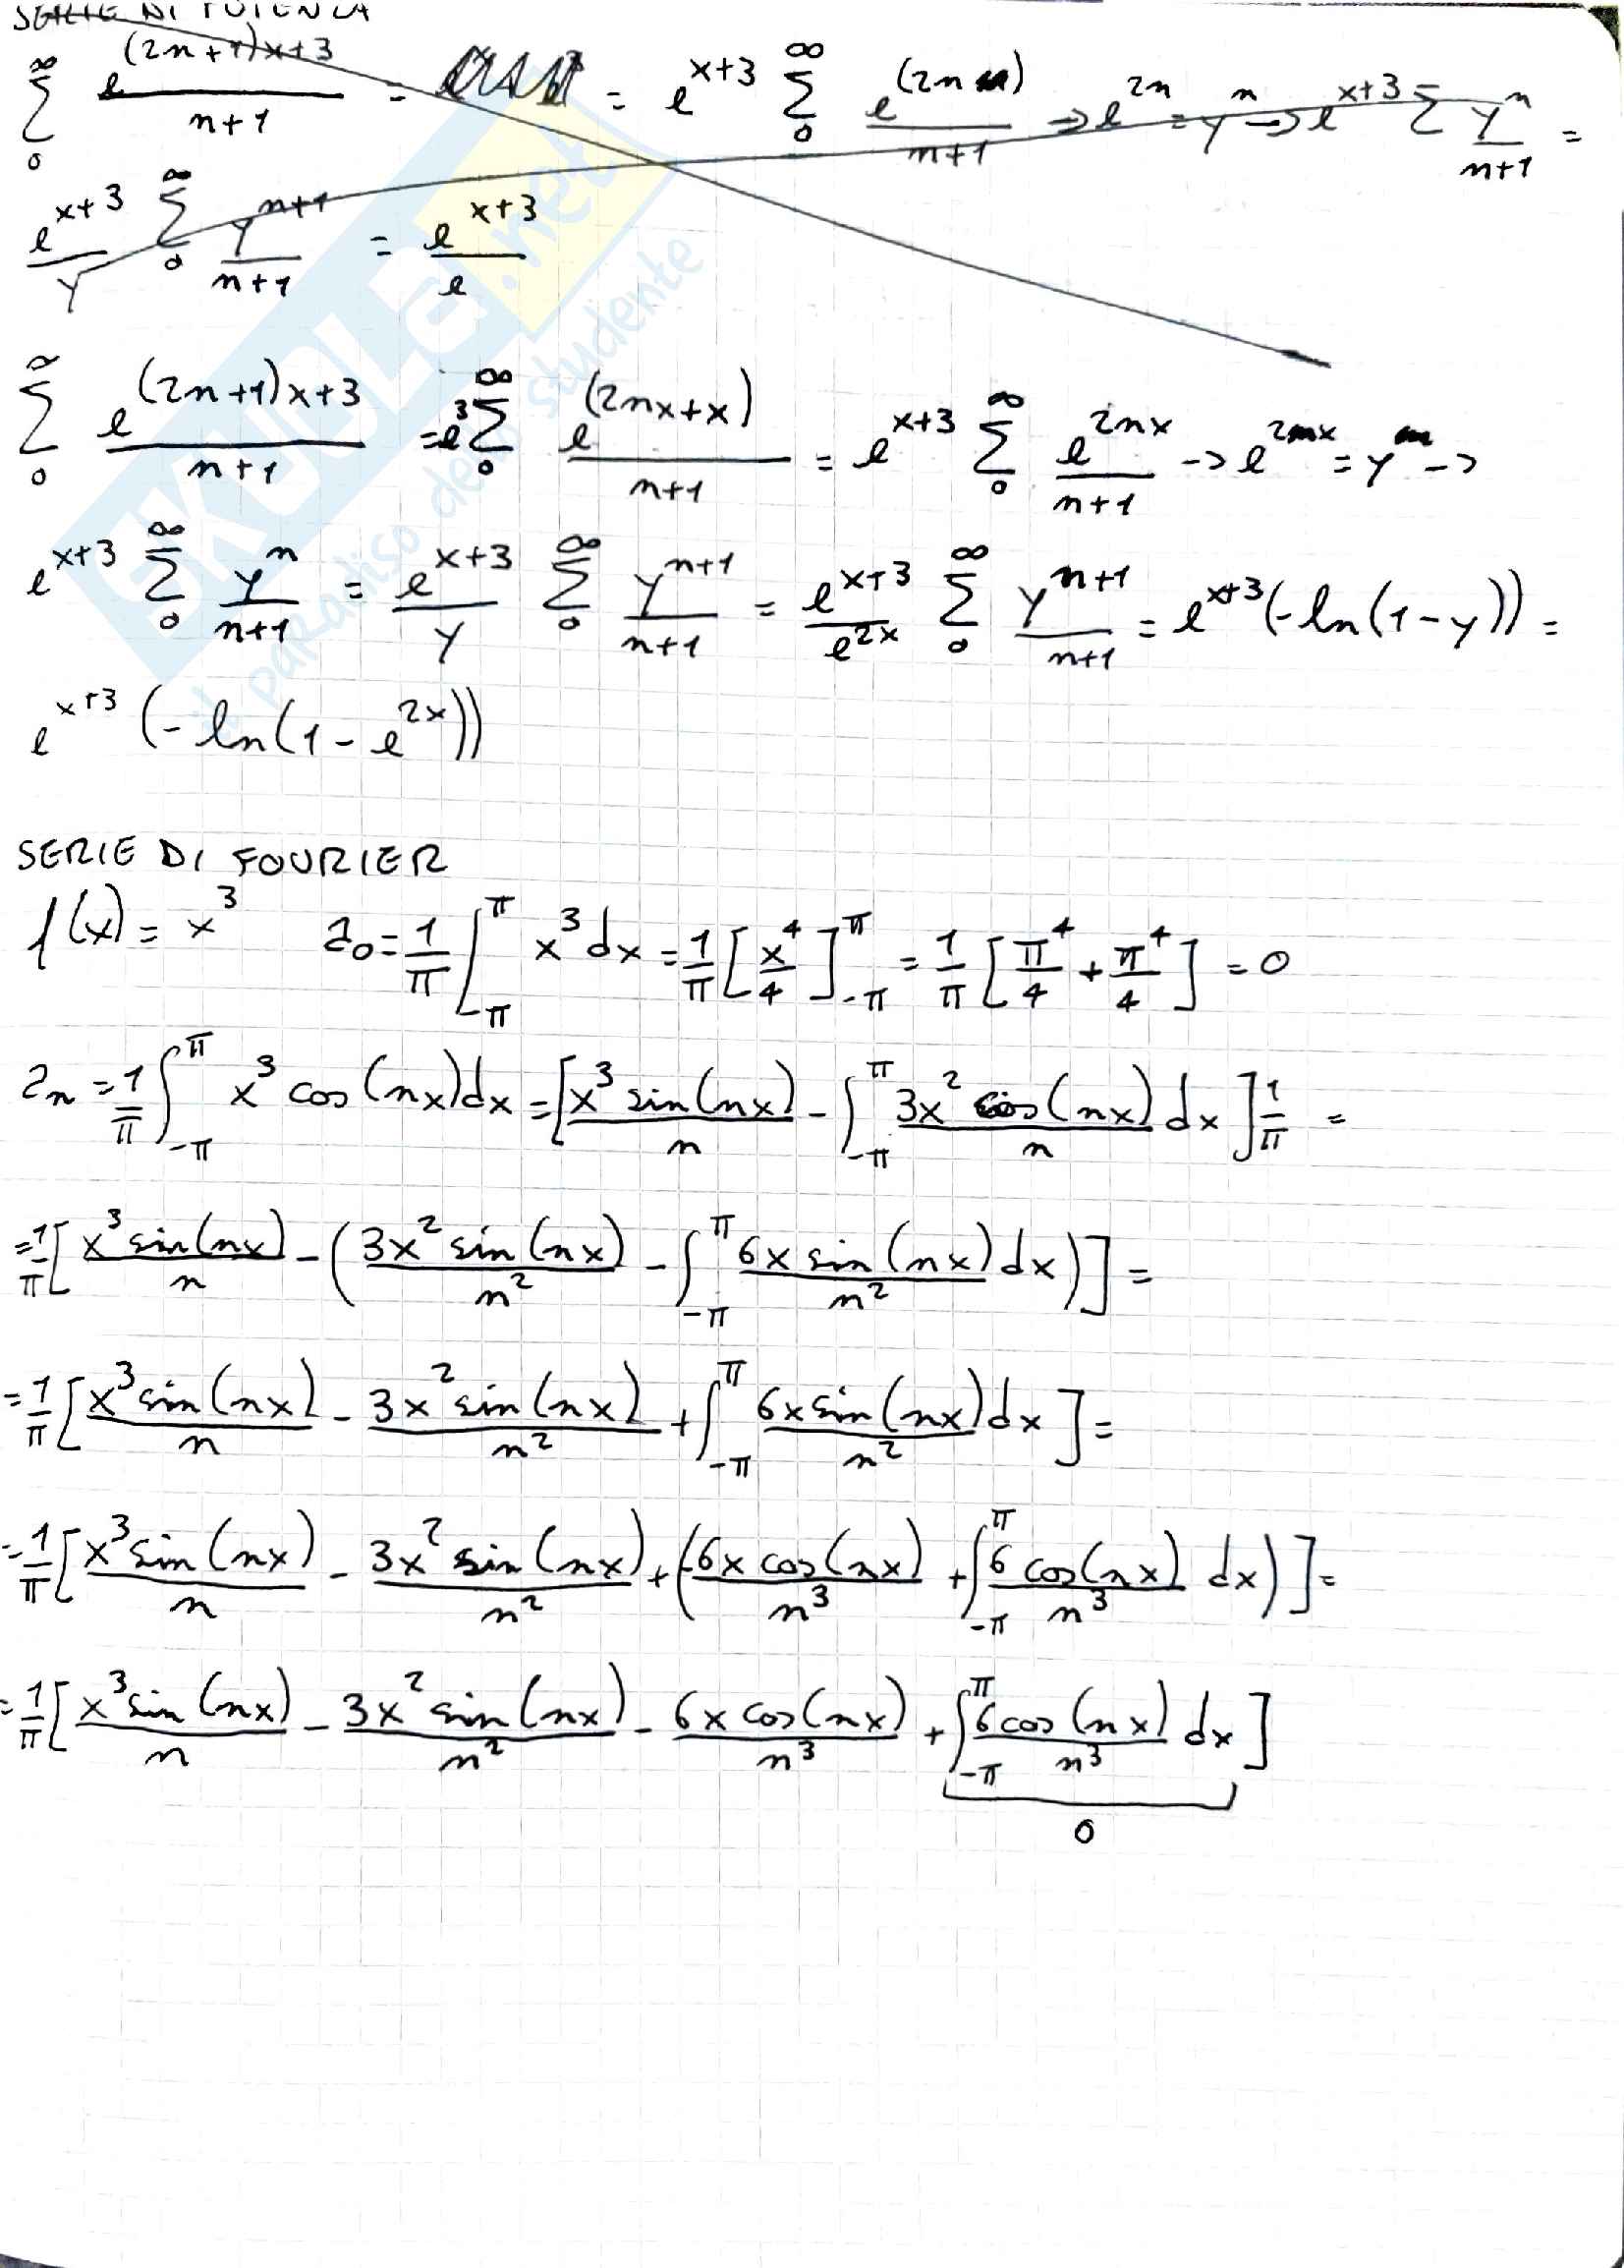 SERIE DI POTENZA
∑_0^∞ e^{(2n+1)x+3}/(n+1) = = e^{x+3} ∑_0^∞ e^{(2n)}/(n+1) → e^{2n} = y^n → e^{x+3} ∑ y^n/(n+1) =
e^{x+3}/y ∑_0^∞ y^{n+1}/(n+1) = e^{x+3}/e
∑_0^∞ e^{(2n+1)x+3}/(n+1) = e^3 ∑_0^∞ e^{(2nx+x)}/(n+1) = e^{x+3} ∑_0^∞ e^{2nx}/(n+1) → e^{2nx} = y^n →
e^{x+3} ∑_0^∞ y^n/(n+1) = e^{x+3}/y ∑_0^∞ y^{n+1}/(n+1) = e^{x+3}/e^{2x} ∑_0^∞ y^{n+1}/(n+1) = e^{x+3}(-ln(1-y)) =
e^{x+3}(-ln(1-e^{2x}))
SERIE DI FOURIER
f(x) = x^3 a_0 = 1/π ∫_{-π}^{π} x^3 dx = 1/π [x^4/4]_{-π}^{π} = 1/π [π^4/4 + π^4/4] = 0
a_n = 1/π ∫_{-π}^{π} x^3 cos(nx)dx = [x^3 sin(nx)/n - ∫_{-π}^{π} 3x^2 cos(nx)/n dx] 1/π =
= 1/π [x^3 sin(nx)/n - (3x^2 sin(nx)/n^2 - ∫_{-π}^{π} 6x sin(nx)/n^2 dx)] =
= 1/π [x^3 sin(nx)/n - 3x^2 sin(nx)/n^2 + ∫_{-π}^{π} 6x sin(nx)/n^2 dx] =
= 1/π [x^3 sin(nx)/n - 3x^2 sin(nx)/n^2 + (-6x cos(nx)/n^3 + ∫_{-π}^{π} 6 cos(nx)/n^3 dx)] =
= 1/π [x^3 sin(nx)/n - 3x^2 sin(nx)/n^2 - 6x cos(nx)/n^3 + ∫_{-π}^{π} 6 cos(nx)/n^3 dx]
0
SKUOLA.net
il paradiso dello studente